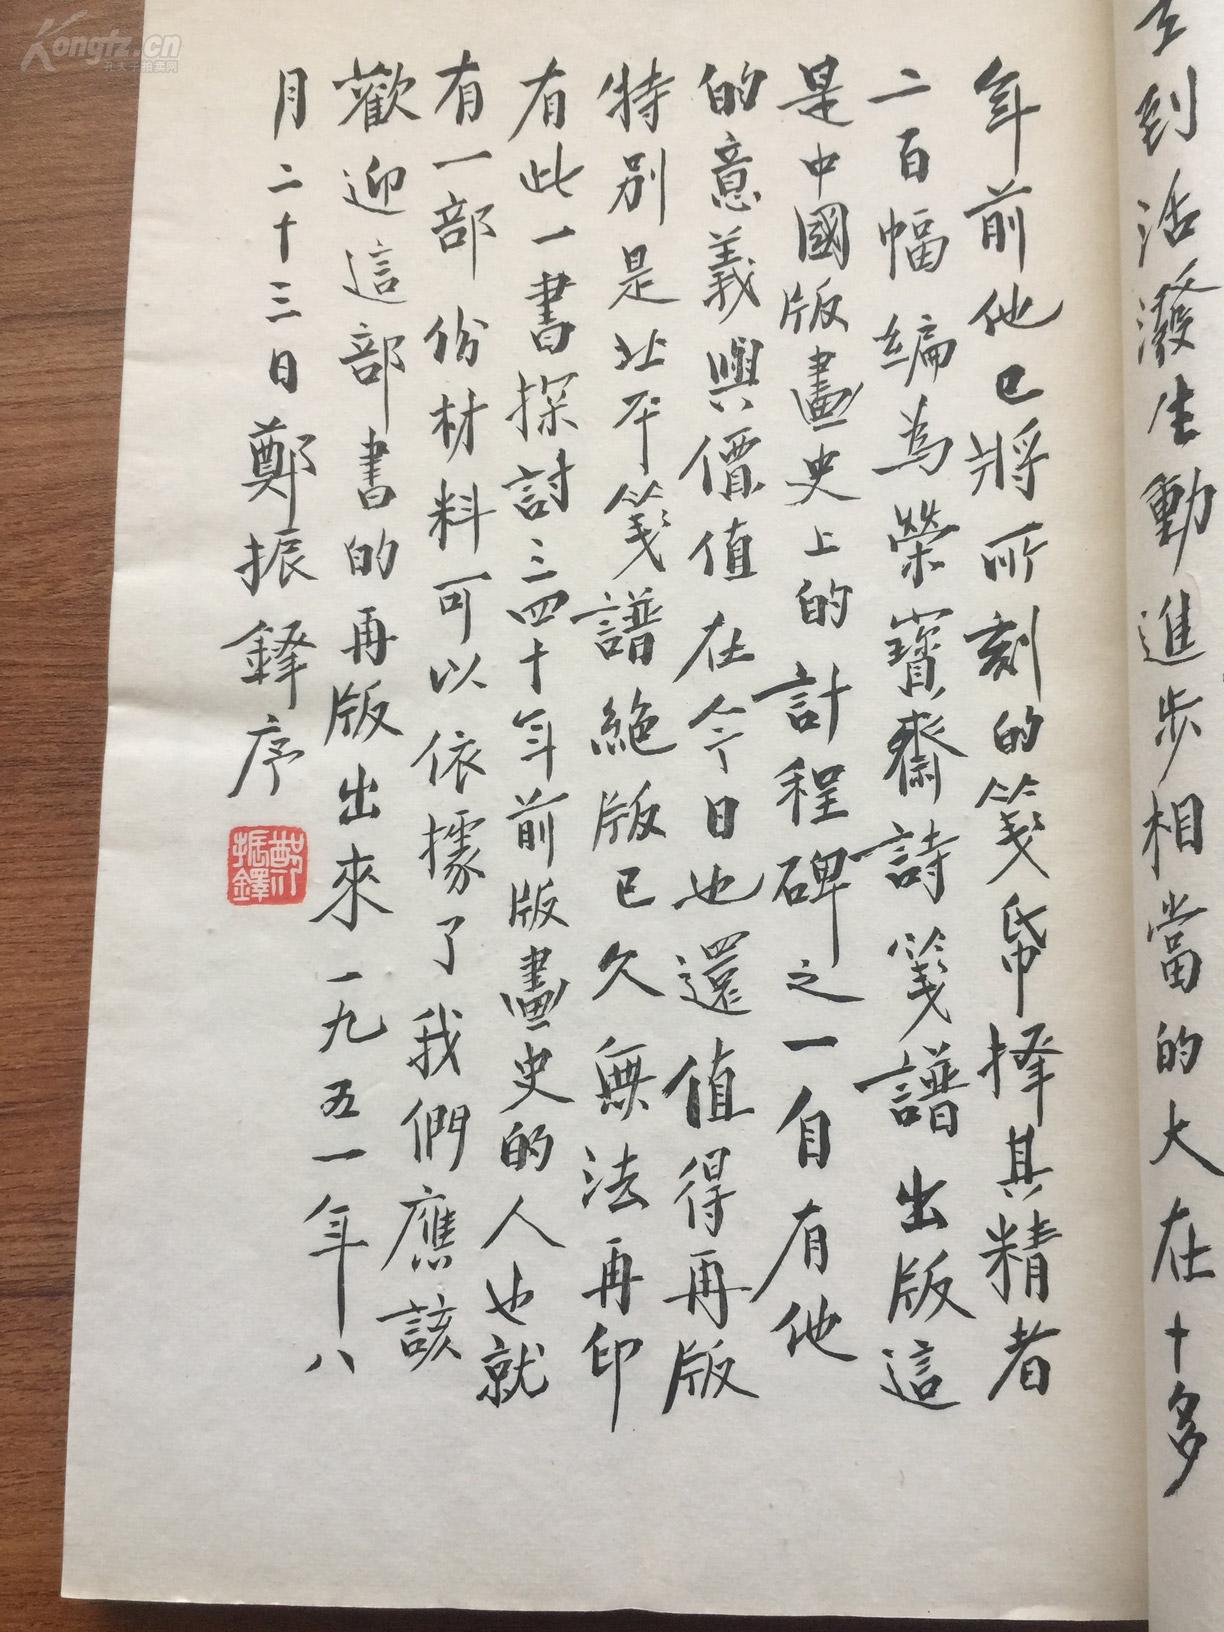 到活潑生動進步相當的大在十多
年前他已將所刻的箋帋擇其精者
二百幅編為榮寶齋詩箋譜出版這
是中國版畫史上的計程碑之一自有他
的意義與價值在今日也還值得再版
特別是北平箋譜絶版已久無法再印
有此一書探討三四十年前版畫史的人也就
有一部份材料可以依據了我們應該
歡迎這部書的再版出來一九五一年八
月二十三日鄭振鐸序
鄭振鐸
Kongfz.cn
孔夫子拍卖网